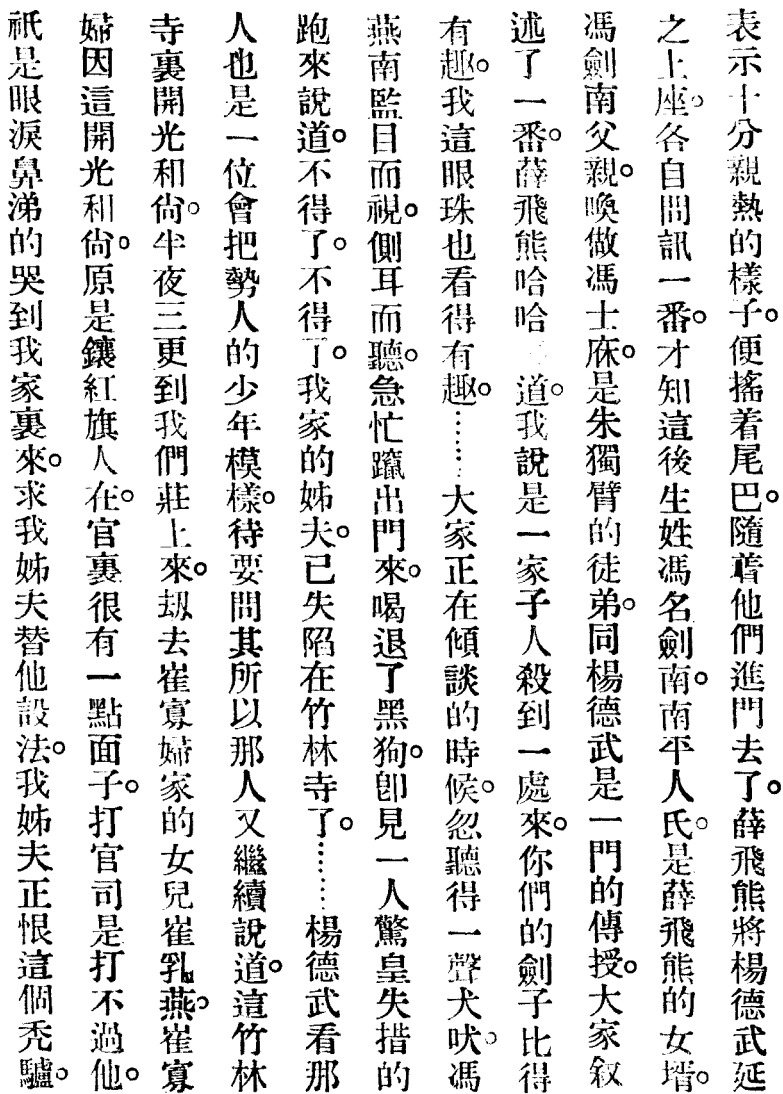 表示十分親熱的樣子。便搖着尾巴。隨着他們進門去了。薛飛熊將楊德武延
之上座。各自問訊一番。才知這後生姓馮名劍南。南平人氏。是薛飛熊的女壻。
馮劍南父親。喚做馮士庥。是朱獨臂的徒弟。同楊德武是一門的傳授。大家叙
述了一番。薛飛熊哈哈 道。我說是一家子人殺到一處來。你們的劍子比得
有趣。我這眼珠也看得有趣。……大家正在傾談的時候。忽聽得一聲犬吠。馮
燕南監目而視。側耳而聽。急忙躥出門來。喝退了黑狗。卽見一人驚皇失措的
跑來說道。不得了。不得了。我家的姊夫。已失陷在竹林寺了。……楊德武看那
人也是一位會把勢人的少年模樣。待要問其所以那人又繼續說道。這竹林
寺裏開光和尙。半夜三更到我們莊上來。刼去崔寡婦家的女兒崔乳燕。崔寡
婦因這開光和尙。原是鑲紅旗人。在官裏很有一點面子。打官司是打不過他。
祇是眼淚鼻涕的哭到我家裏來。求我姊夫替他設法。我姊夫正恨這個禿驢。